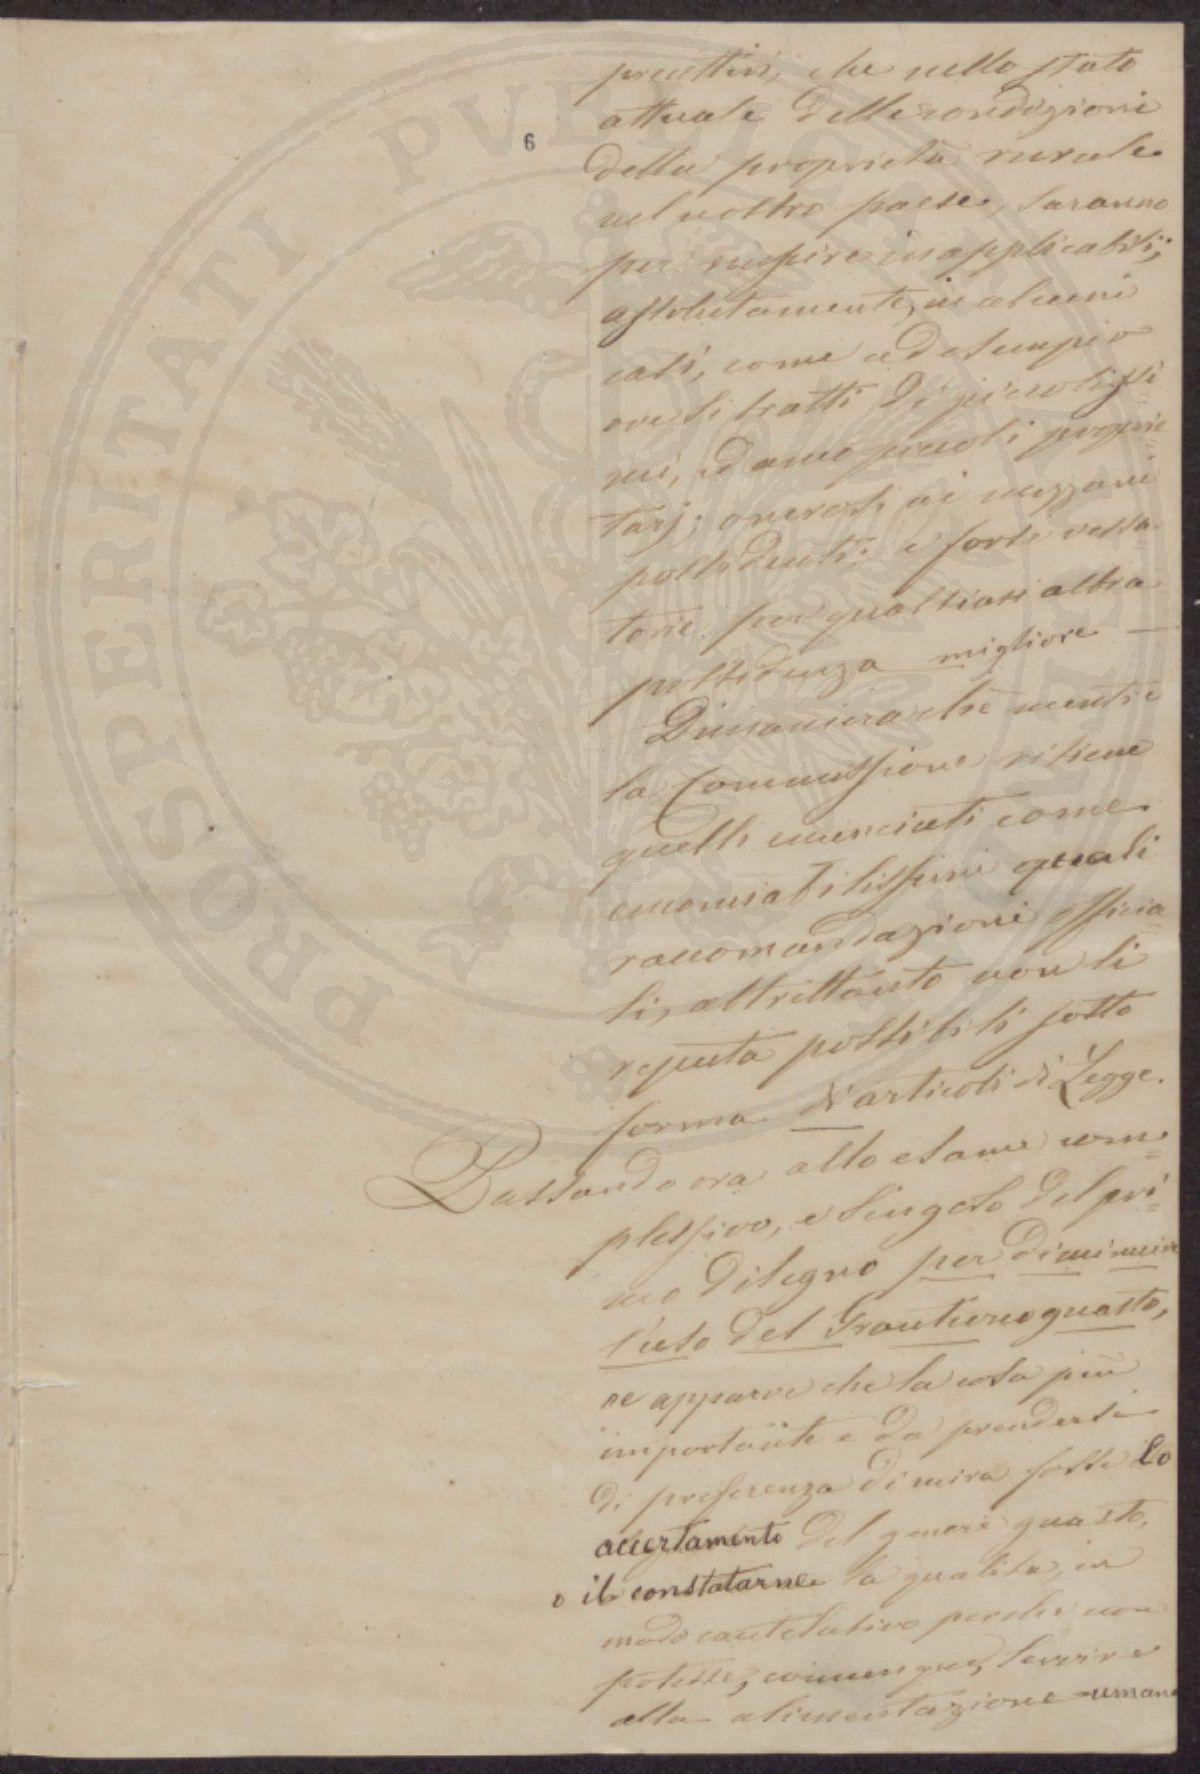 6
precettivi, che nello stato
attuale delle condizioni
della proprietà rurale
nel nostro paese, saranno
per riuscire inapplicabili;
assolutamente, in alcuni
casi, come ad esempio
ove si tratti di piccolissi
mi, ed anco piccoli proprie=
tarj; onerosi ai mezzani
possidenti; e forse vessa=
torie per qualsiasi altra
possidenza migliore —
Dimanierachè mentre
la Commissione ritiene
quelli enunciati come
encomiabilissimi quali
raccomandazioni officia=
li, altrettanto non li
reputa possibili sotto
forma di articoli di Legge.
Passando ora allo esame com=
plessivo, e singolo del pri=
mo disegno per diminuire
l'uso del Granturco guasto,
ne apparve che la cosa più
importante e da prendersi
di preferenza di mira fosse lo
accertamento del genere guasto,
o il constatarne la qualità, in
modo cautelativo perchè non
potesse, comunque, servire
alla alimentazione umana
PROSPERITATI PVBLICAE